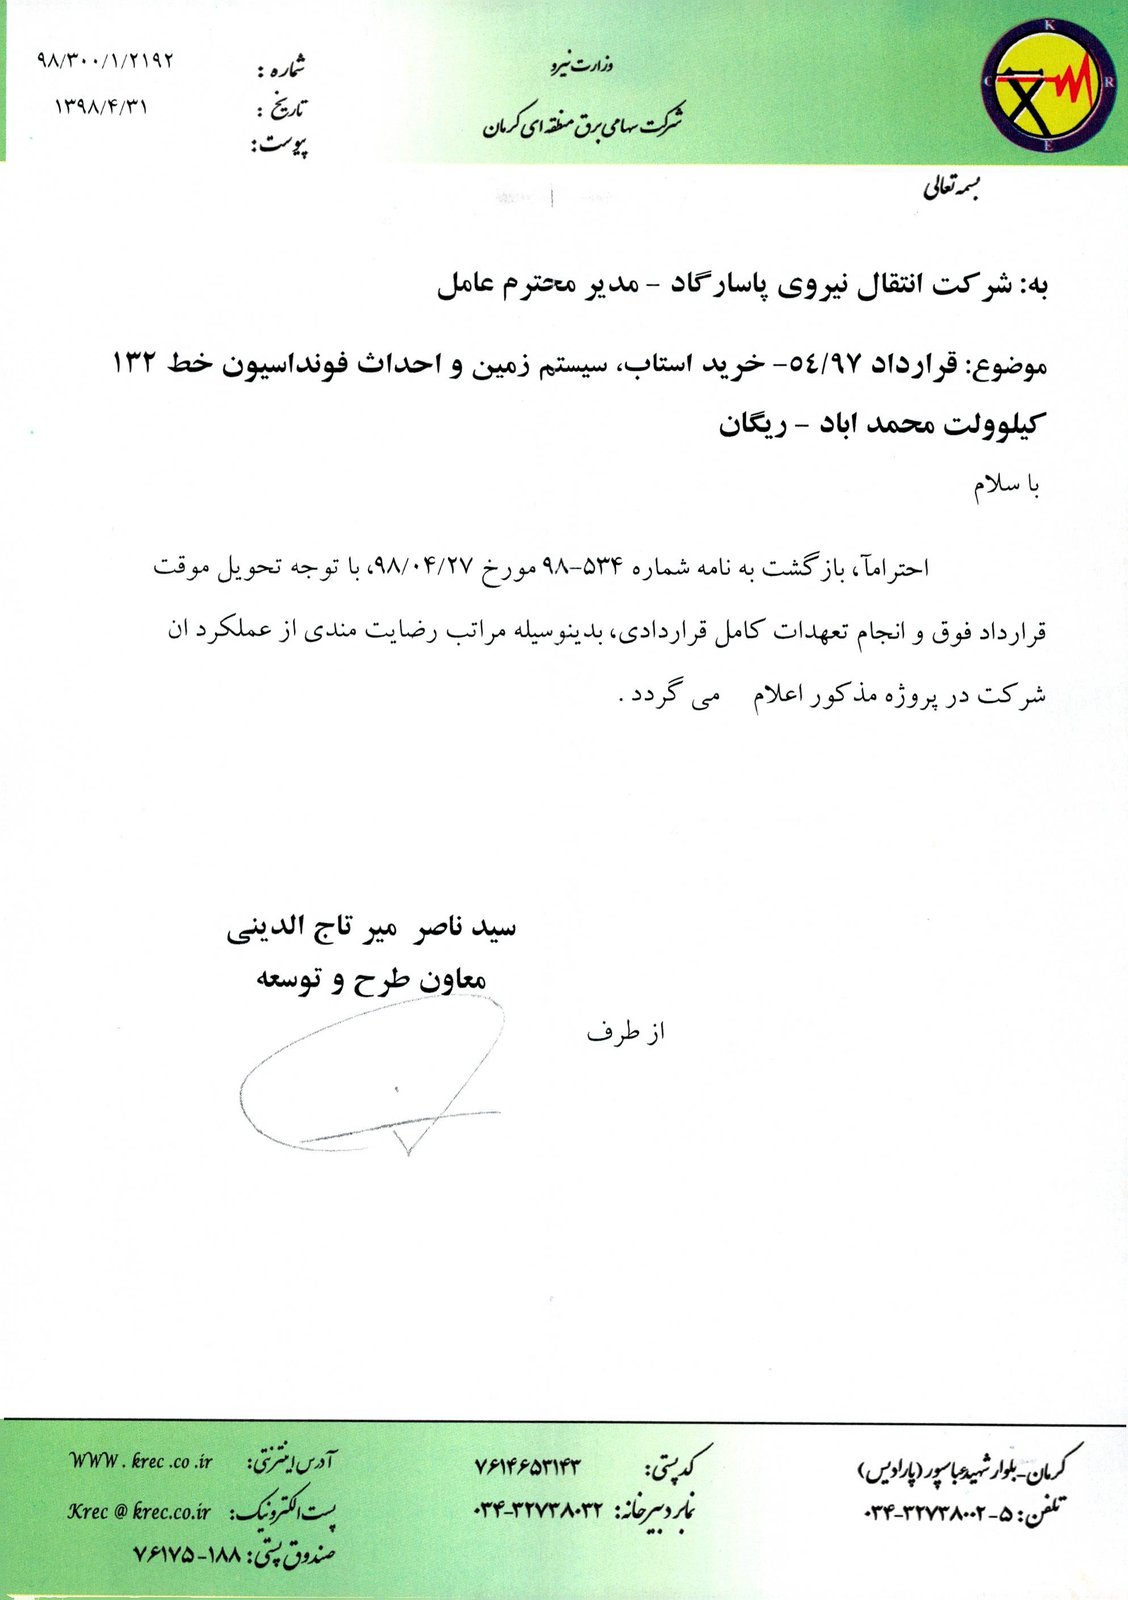 K
C R
E
وزارت نیرو
شرکت سهامی برق منطقه ای کرمان
شماره : ۹۸/۳۰۰/۱/۲۱۹۲
تاریخ : ۱۳۹۸/۴/۳۱
پیوست:
بسمه تعالی
به: شرکت انتقال نیروی پاسارگاد - مدیر محترم عامل
موضوع: قرارداد ٥٤/٩٧- خرید استاب، سیستم زمین و احداث فونداسیون خط ۱۳۲
کیلوولت محمد اباد - ریگان
با سلام
احتراماً، بازگشت به نامه شماره ۵۳۴-۹۸ مورخ ۹۸/۰۴/۲۷، با توجه تحویل موقت
قرارداد فوق و انجام تعهدات کامل قراردادی، بدینوسیله مراتب رضایت مندی از عملکرد ان
شرکت در پروژه مذکور اعلام می گردد .
سید ناصر میر تاج الدینی
معاون طرح و توسعه
از طرف
کرمان-بلوار شهید عباسپور (پارادیس)
تلفن: ۵-۰۳۴-۳۲۷۳۸۰۰۲
کدپستی: ۷۶۱۴۶۵۳۱۴۳
نمابر دبیرخانه: ۰۳۴-۳۲۷۳۸۰۳۲
آدرس اینترنتی: WWW . krec .co .ir
پست الکترونیک: Krec @ krec.co.ir
صندوق پستی: ۱۸۸-۷۶۱۷۵